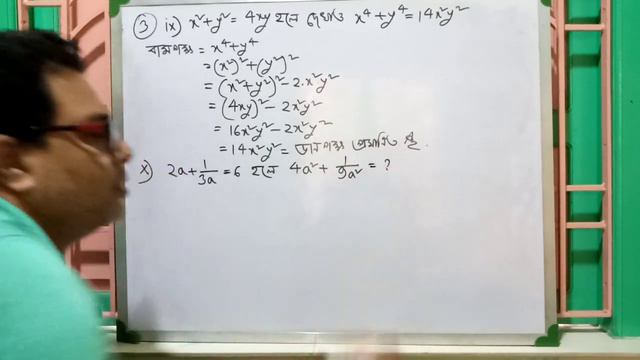 ③ ix) x²+y² = 4xy হলে দেখাও x⁴+y⁴ = 14x²y²
বামপক্ষ = x⁴+y⁴
= (x²)²+(y²)²
= (x²+y²)²-2.x²y²
= (4xy)²-2x²y²
= 16x²y²-2x²y²
= 14x²y² = ডানপক্ষ প্রমাণিত
x) 2a+1/3a = 6 হলে 4a²+1/9a² = ?